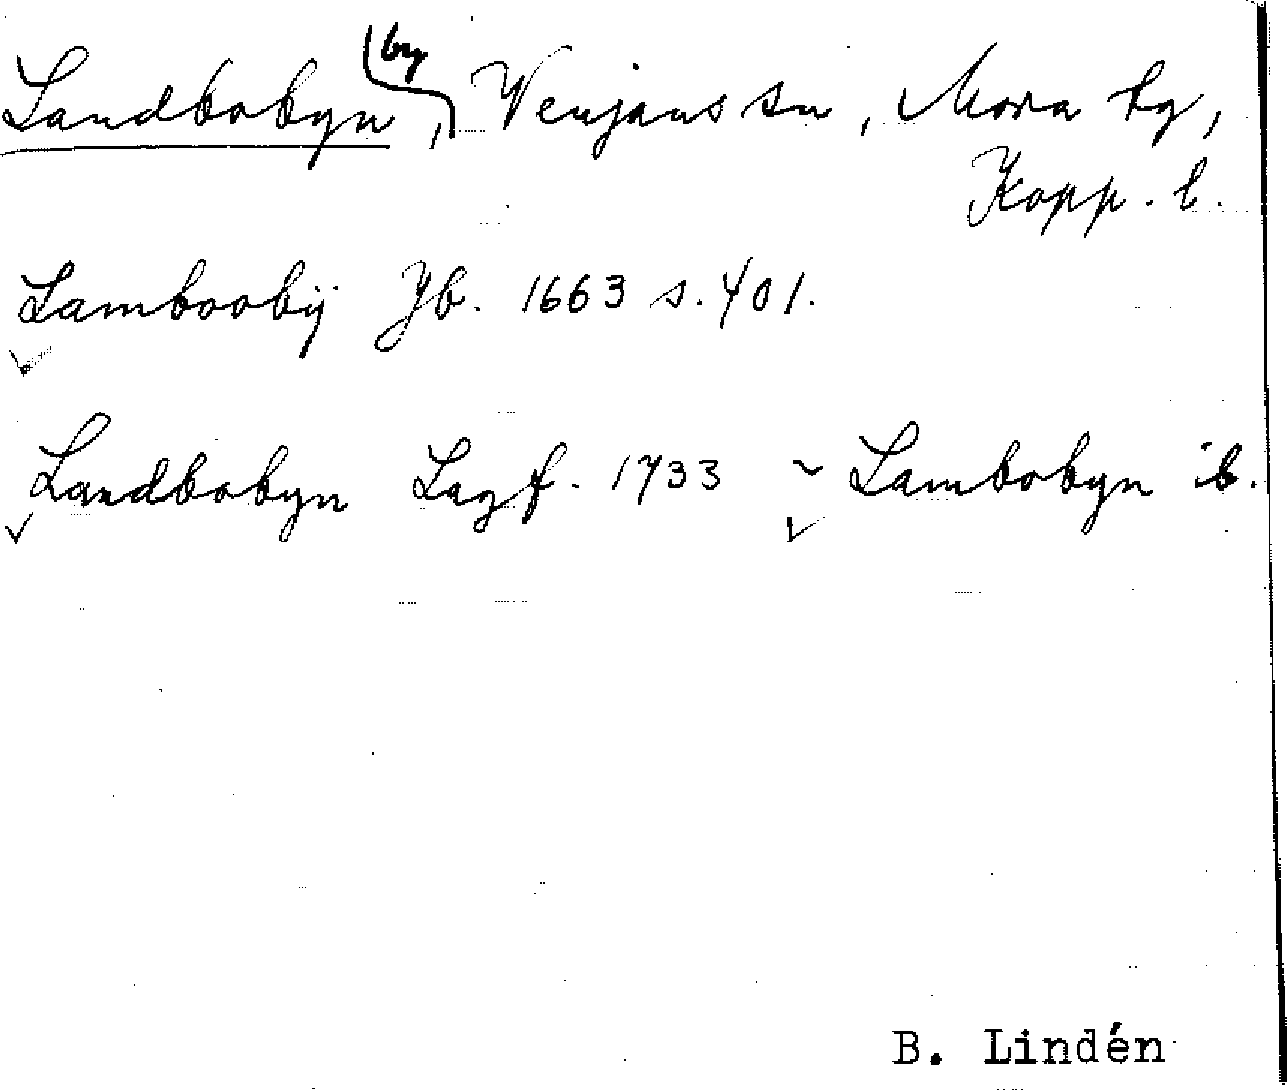 Landbobyn, by Venjans sn, Mora tg,
Kopp. l.
Lamboobÿ Jb. 1663 s. 401.
Landbobyn Lagf. 1733 ~ Lambobyn ib.
B. Lindén